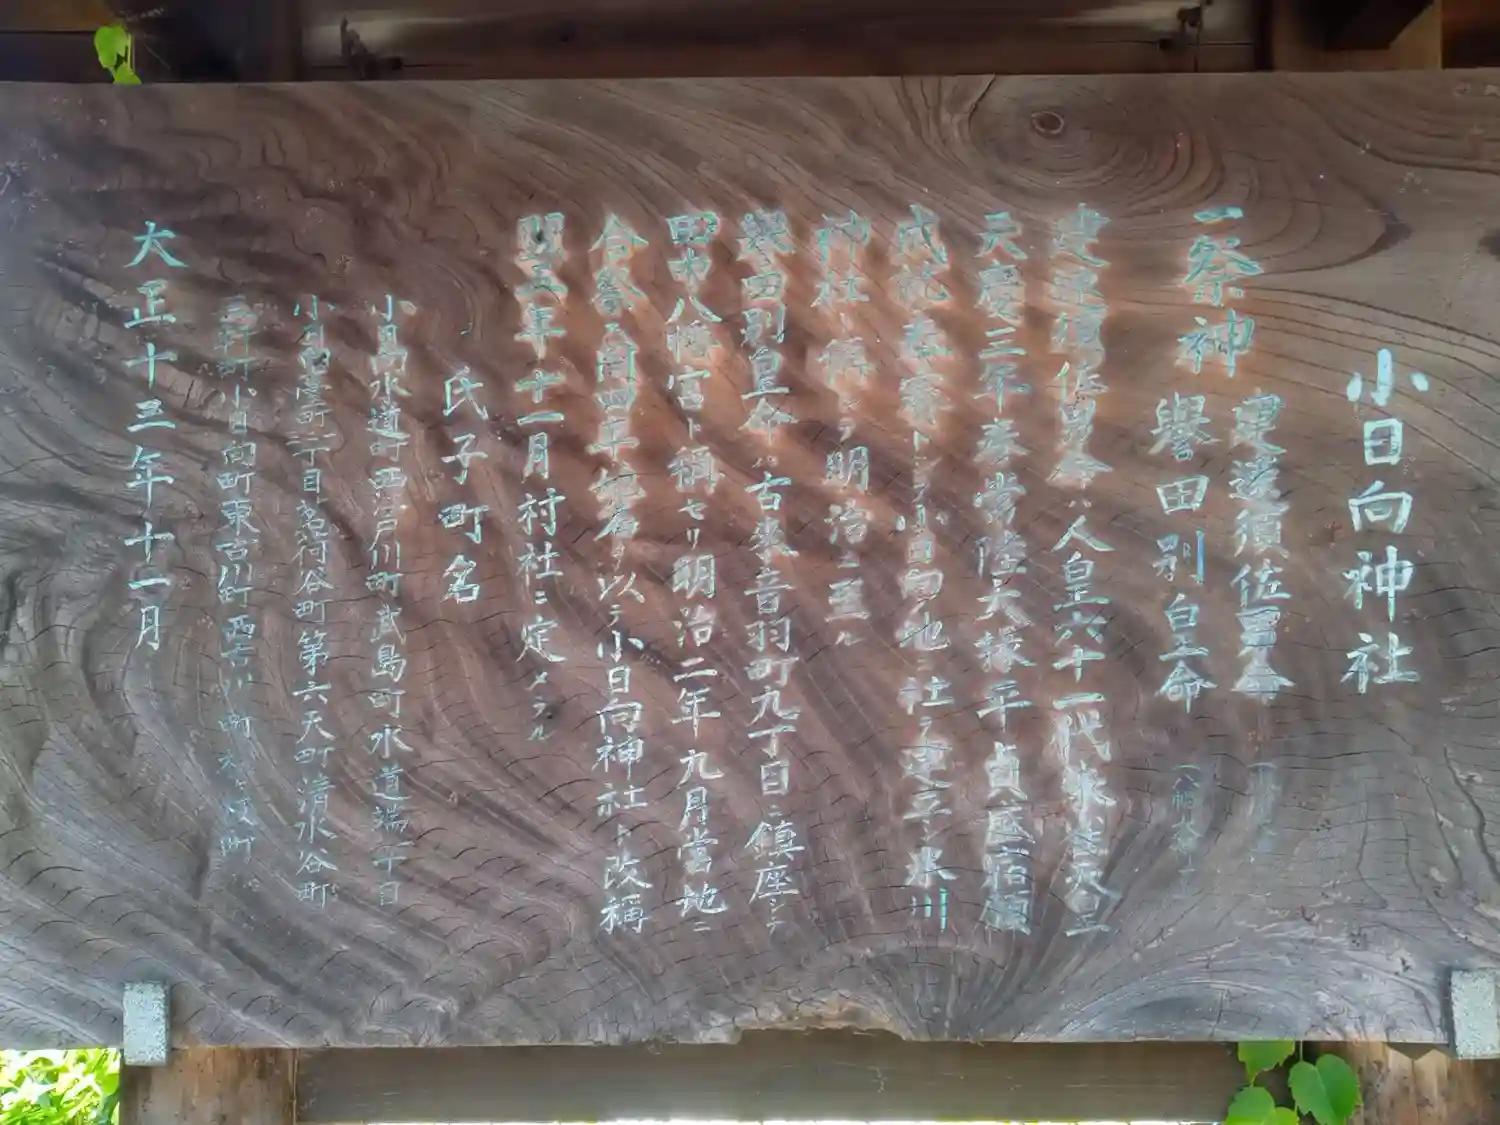 小日向神社
一祭神
建速須佐男命
譽田別皇命
建速須佐男命ハ人皇六十一代朱雀天皇
天慶三年春常陸大掾平貞盛宿願
成就奉賽トシテ小日向ノ地ニ社ヲ建立シ氷川
神社ト稱シテ明治ニ至ル
譽田別皇命ハ古来音羽町九丁目ニ鎮座シテ
田中八幡宮ト稱セリ明治二年九月當地ニ
合祭シ同四年地名ヲ以テ小日向神社ト改稱
五年十一月村社ニ定メラル
氏子町名
小日向水道町西江戸川町武島町水道端一丁目
小日向臺町一丁目茗荷谷町第六天町清水谷町
町小日向町東古川町西古川町
大正十三年十一月